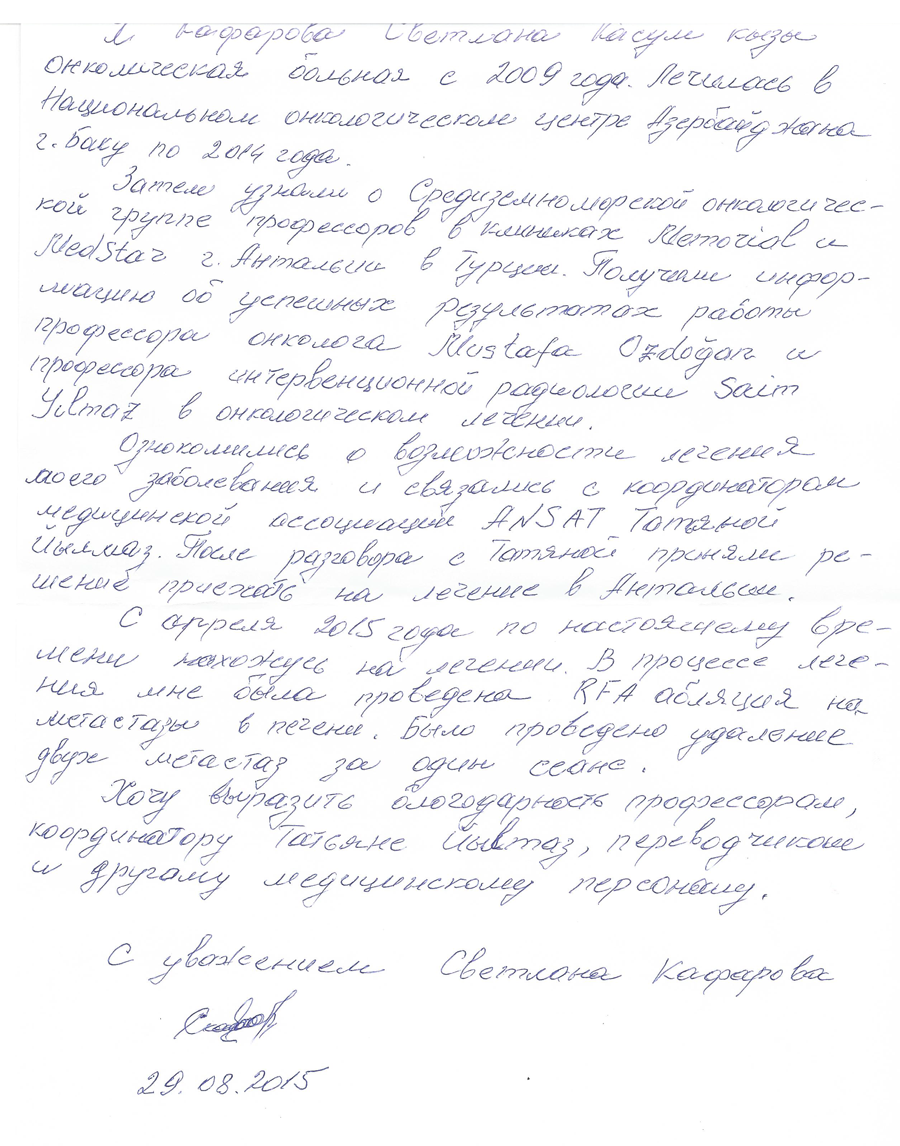 Я Кафарова Светлана Касум кызы
онкомическая больная с 2009 года. Лечилась в
Национальном онкологическом центре Азербайджана
г. Баку по 2014 года.
Затем узнали о Средиземноморской онкологичес-
кой группе профессоров в клиниках Memorial и
MedStar г. Антальи в Турции. Получили инфор-
мацию об успешных результатах работы
профессора онколога Mustafa Ozdoğan и
профессора интервенционной радиологии Saim
Yılmaz в онкологическом лечении.
Ознокомились о возможности лечения
моего заболевания и связались с координатором
медицинской ассоциаций ANSAT Татьяной
Йылмаз. После разговора с Татяной приняли ре-
шение приехать на лечение в Антальи.
С апреля 2015 года по настоящему вре-
мени нахожусь на лечении. В процессе лече-
ния мне была проведена RFA абляция на
метастазы в печени. Было проведено удаление
двух метастаз за один сеанс.
Хочу выразить благодарность профессорам,
координатору Татьяне Йылмаз, переводчикам
и другому медицинскому персоналу.
С уважением Светлана Кафарова
29.08.2015